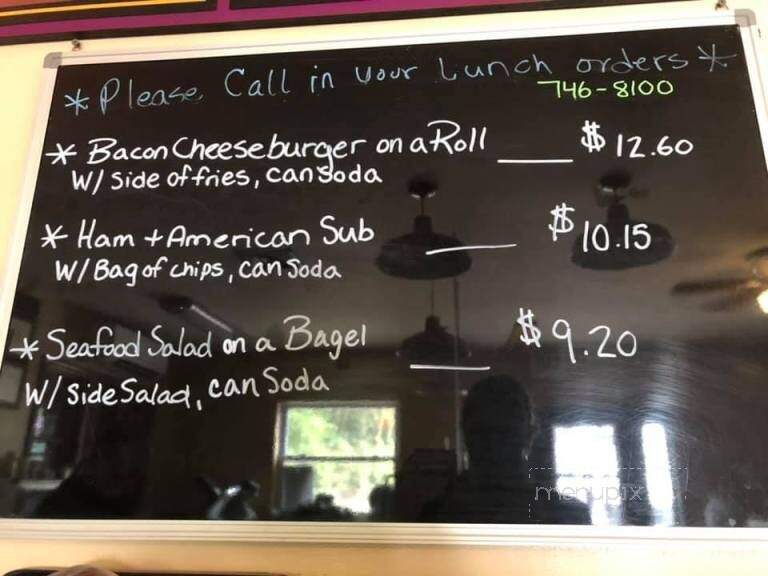 *Please Call in your Lunch orders*
746-8100
* Bacon Cheeseburger on a Roll ___ $12.60
W/ Side of fries, can Soda
* Ham + American Sub ___ $10.15
W/ Bag of chips, can Soda
* Seafood Salad on a Bagel ___ $9.20
W/ Side Salad, can Soda
menupix